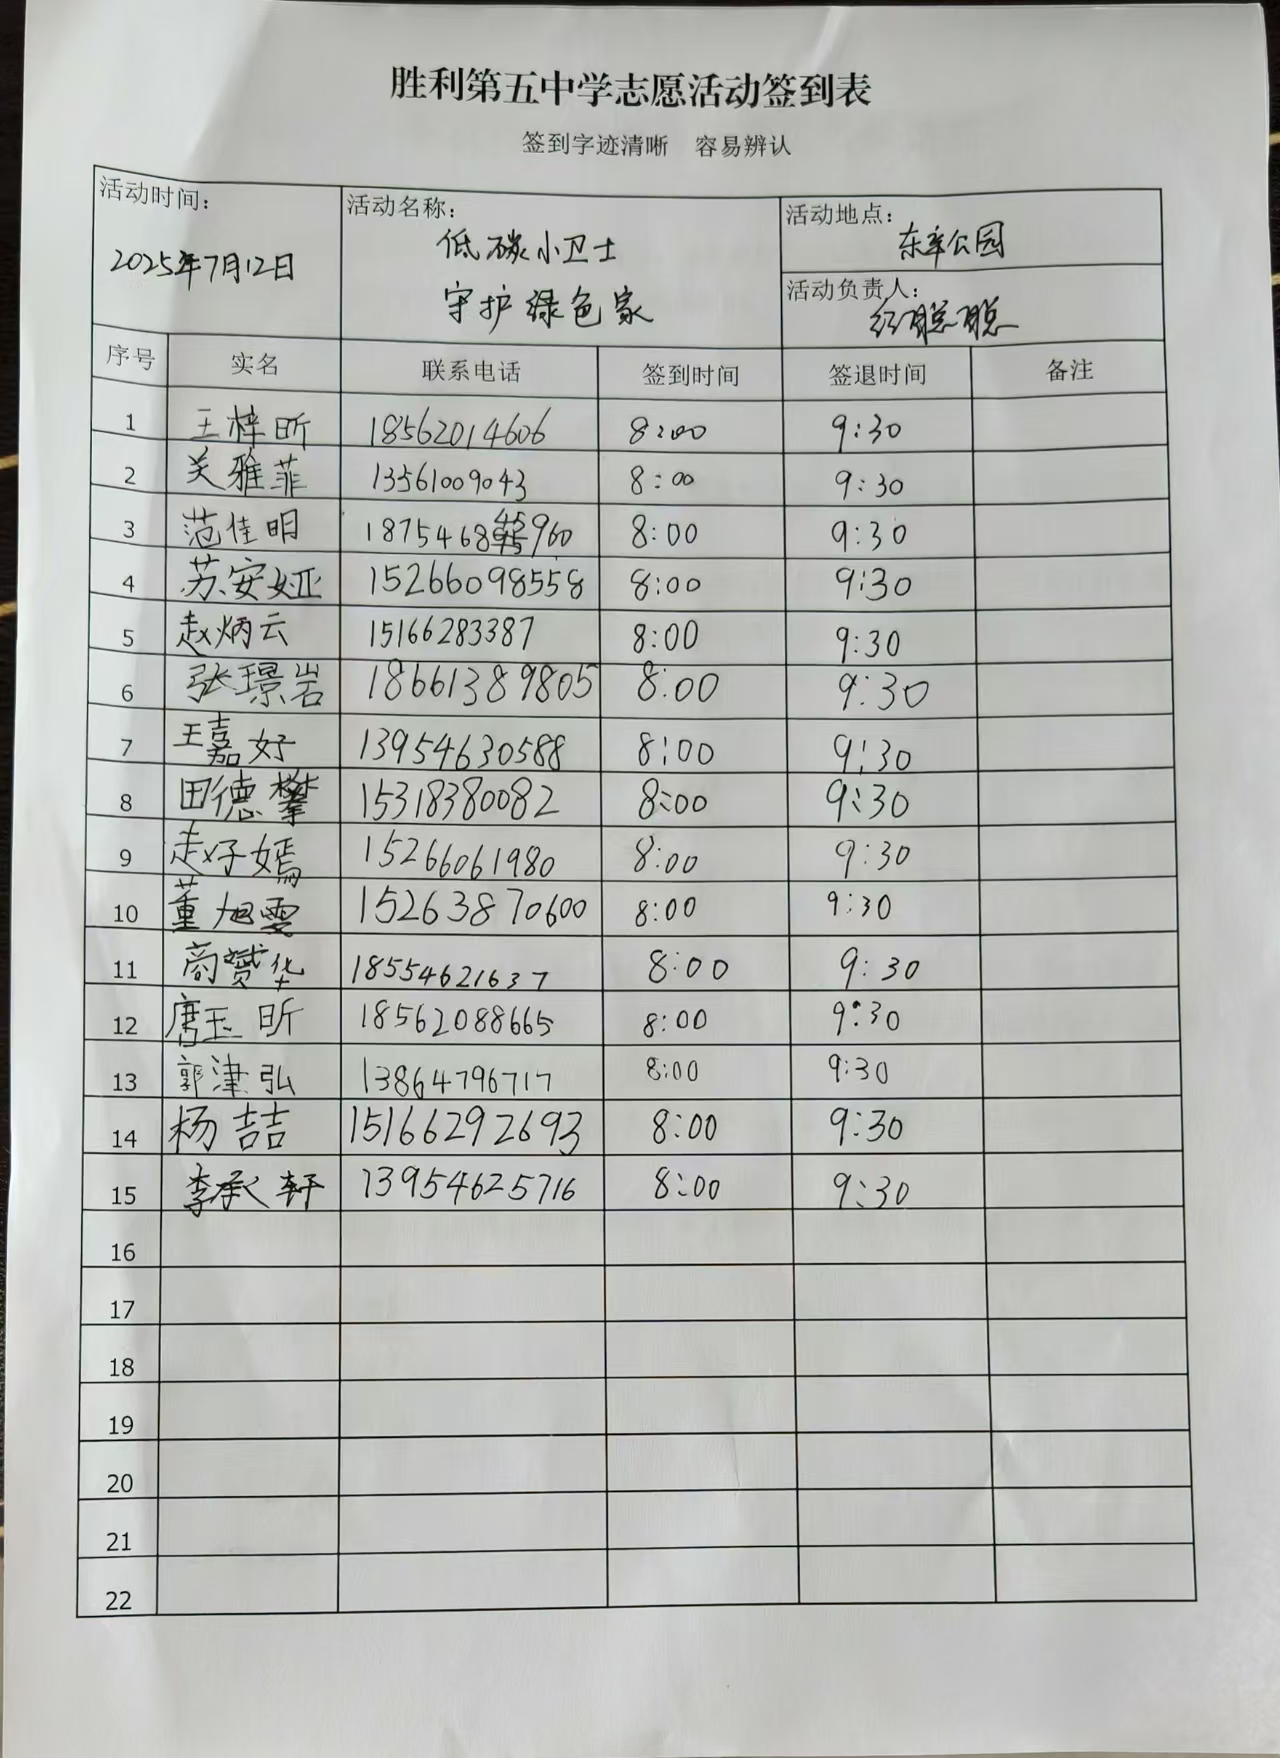 胜利第五中学志愿活动签到表
签到字迹清晰 容易辨认
活动时间：
2025年7月12日
活动名称：
低碳小卫士
守护绿色家
活动地点：
东辛公园
活动负责人：
聪聪
序号 实名 联系电话 签到时间 签退时间 备注
1 王梓昕 18562014606 8:00 9:30
2 关雅菲 13561009043 8:00 9:30
3 范佳明 8:00 9:30
4 苏安娅 15266098558 8:00 9:30
5 赵炳云 15166283387 8:00 9:30
6 张璟岩 18661389805 8:00 9:30
7 王嘉好 13954630588 8:00 9:30
8 田德攀 15318380082 8:00 9:30
9 赵好嫣 15266061980 8:00 9:30
10 董旭雯 15263870600 8:00 9:30
11 商赟华 18554621637 8:00 9:30
12 唐玉昕 18562088665 8:00 9:30
13 郭津弘 13864796717 8:00 9:30
14 杨喆 15166292693 8:00 9:30
15 李承轩 13954625716 8:00 9:30
16
17
18
19
20
21
22